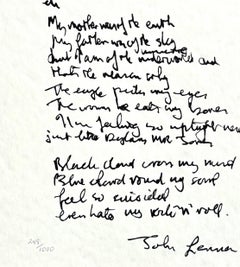 My mother was of the earth
My father was of the sky
But I am of the underworld and
that's the reason why
The eagle picks my eyes
The worm he eats my bones
I'm feeling so
just like Dylans Mr Jones
Black cloud cross my mind
Blue cloud round my soul
feel so suicidal
even hate my rock 'n' roll.
John Lennon